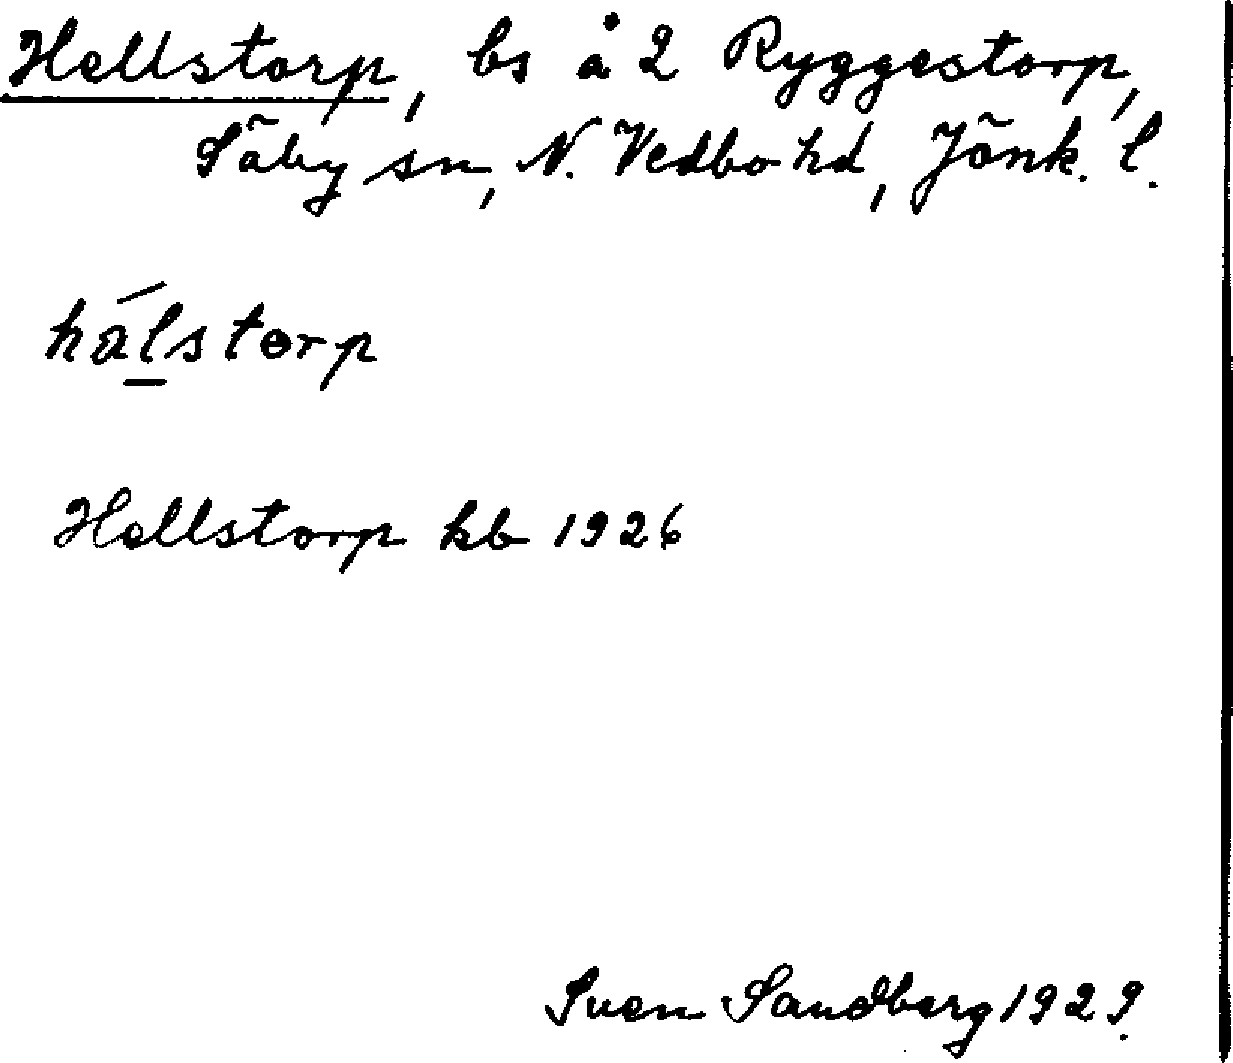 Hellstorp, bs å 2 Ryggestorp,
Säby sn, N. Vedbo hd, Jönk. l.
hálstorp
Hellstorp kb 1926
Sven Sandberg 1929.